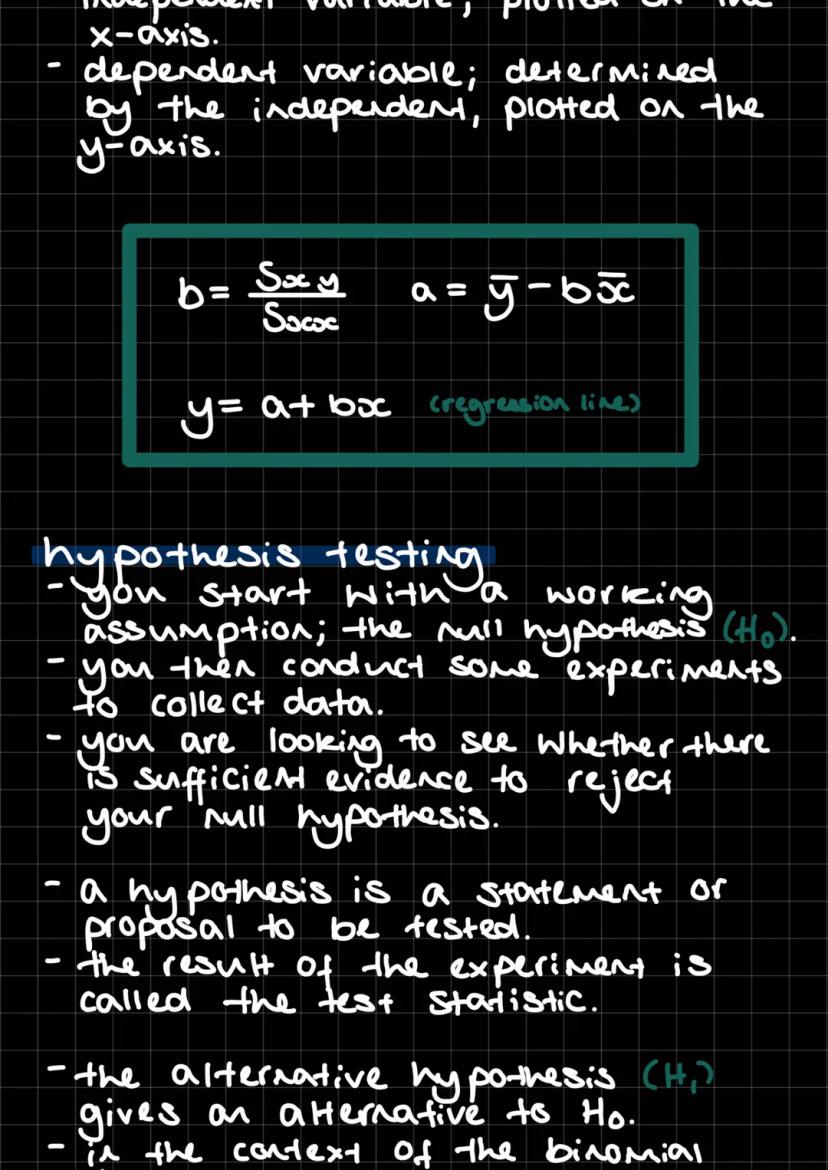 independent variable; plotted on the
x-axis.
- dependent variable; determined
by the independent, plotted on the
y-axis.
b = Sxy / Sxx    a = ȳ - bx̄
y = a + bx (regression line)
hypothesis testing
- you start with a working
assumption; the null hypothesis (H₀).
- you then conduct some experiments
to collect data.
- you are looking to see whether there
is sufficient evidence to reject
your null hypothesis.
- a hypothesis is a statement or
proposal to be tested.
- the result of the experiment is
called the test statistic.
- the alternative hypothesis (H₁)
gives an alternative to H₀.
- in the context of the binomial